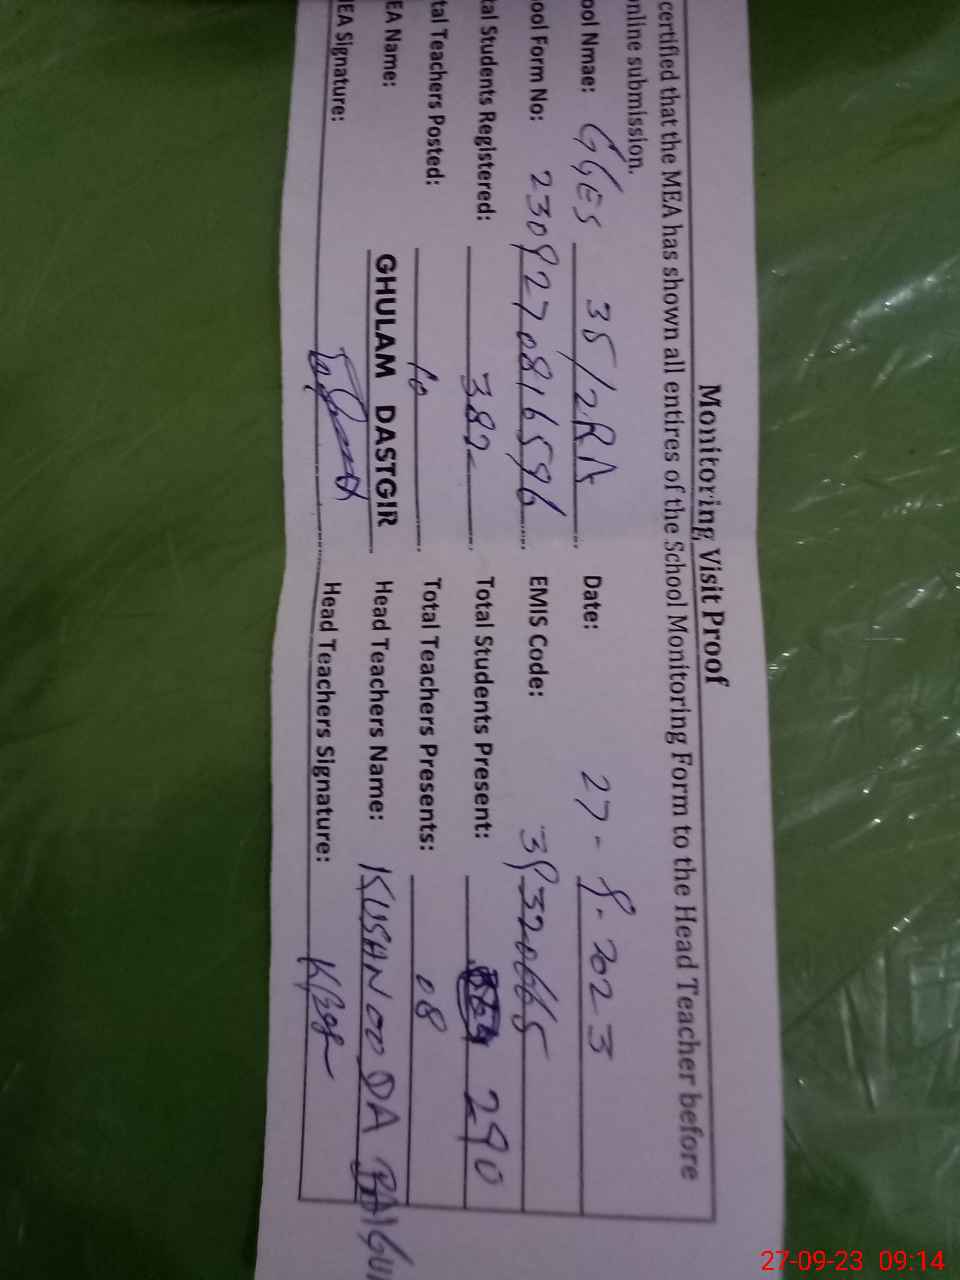 Monitoring Visit Proof
certified that the MEA has shown all entires of the School Monitoring Form to the Head Teacher before
nline submission.
ool Nmae: GGES 35/2RA Date: 27-9-2023
ool Form No: 2309270816596 EMIS Code: 39320665
tal Students Registered: 382 Total Students Present: 290
tal Teachers Posted: 10 Total Teachers Presents: 08
EA Name: GHULAM DASTGIR Head Teachers Name: KUSHNOODA
EA Signature: Head Teachers Signature:
27-09-23 09:14